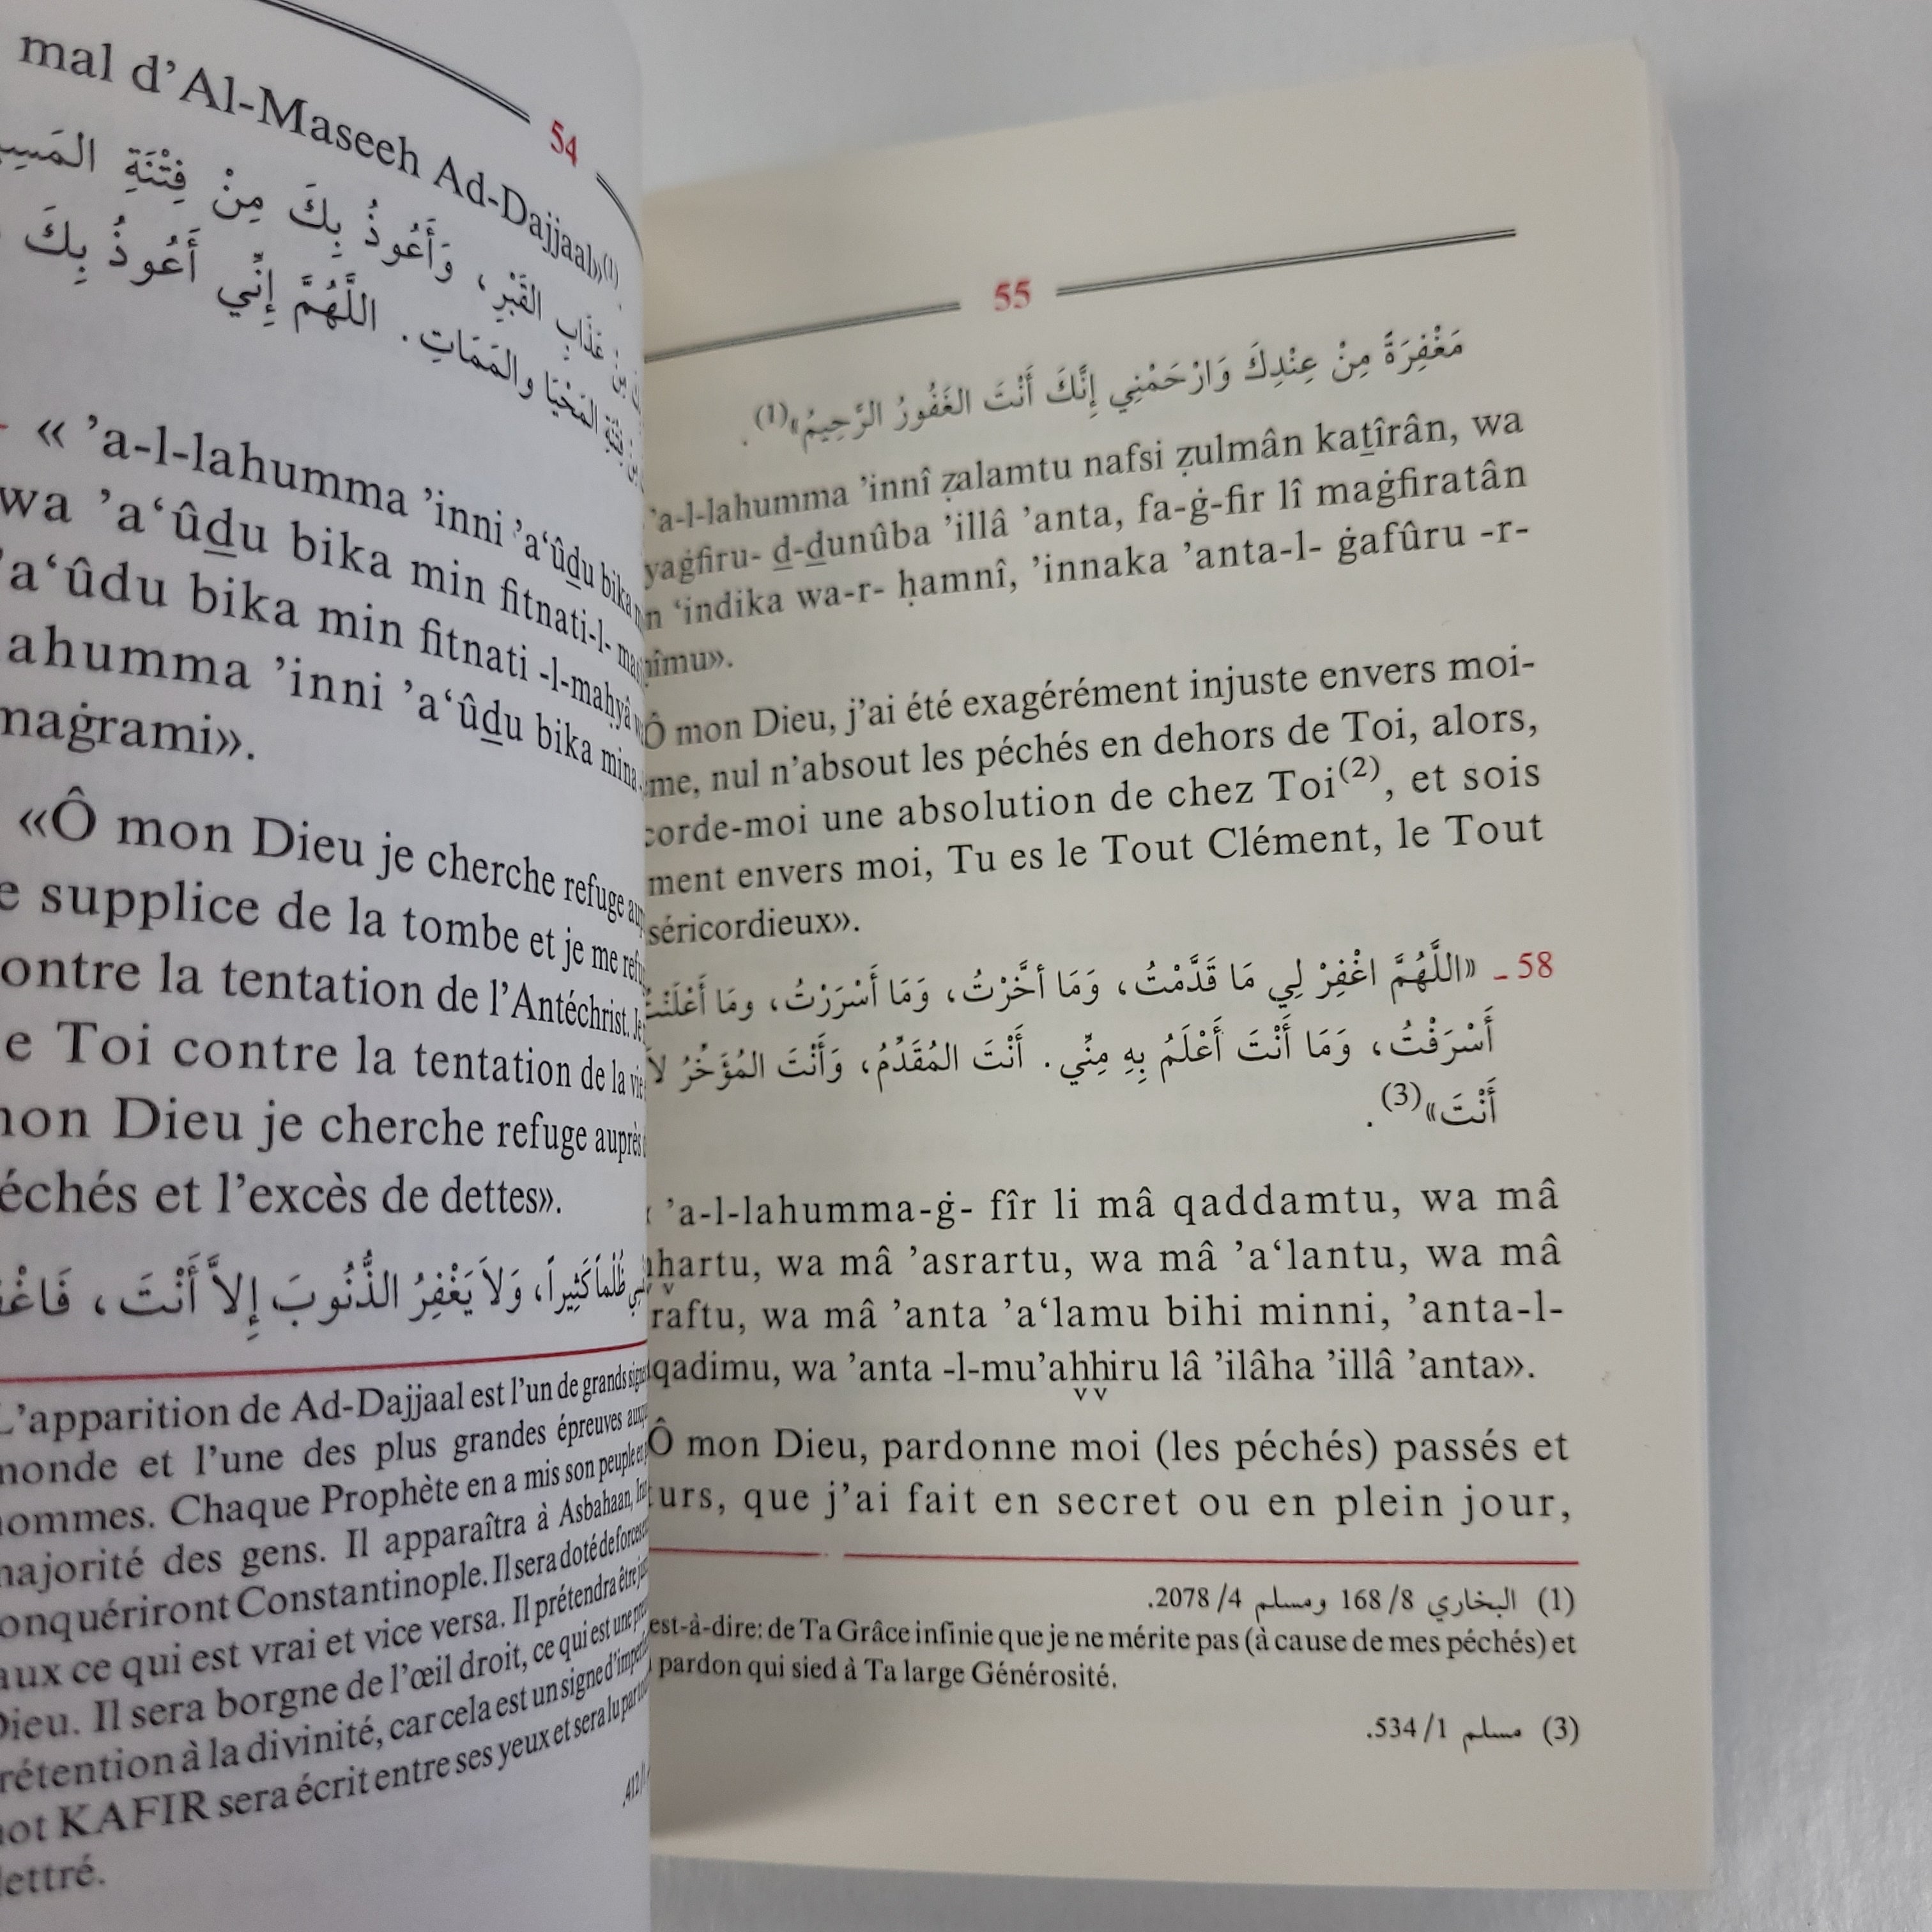 54
mal d'Al-Maseeh Ad-Dajjaal»(1)
عَذَابِ القَبْرِ، وَأَعُوذُ بِكَ مِنْ فِتْنَةِ
المَحْيَا والمَمَاتِ . اللَّهُمَّ إِنِّي أَعُوذُ بِكَ
« ’a-l-lahumma ’inni ’a‘ûḏu bika
wa ’a‘ûḏu bika min fitnati-l-
’a‘ûdu bika min fitnati -l-maḥyâ
ahumma ’inni ’a‘ûḏu bika mina
maġrami».
«Ô mon Dieu je cherche refuge
supplice de la tombe et je me
contre la tentation de l'Antéchrist. Je
Toi contre la tentation de la vie
mon Dieu je cherche refuge auprès
péchés et l'excès de dettes».
ظُلْماً كَثِيراً، وَلاَ يَغْفِرُ الذُّنُوبَ إِلاَّ أَنْتَ ،
L'apparition de Ad-Dajjaal est l'un de grands
monde et l'une des plus grandes épreuves
hommes. Chaque Prophète en a mis son peuple
majorité des gens. Il apparaîtra à Asbahaan,
conquériront Constantinople. Il sera doté de forces
ce qui est vrai et vice versa. Il prétendra être
Dieu. Il sera borgne de l'œil droit, ce qui est une
prétention à la divinité, car cela est un signe
mot KAFIR sera écrit entre ses yeux et sera lu par
lettré.
55
مَغْفِرَةً مِنْ عِنْدِكَ وَارْحَمْنِي إِنَّكَ أَنْتَ الغَفُورُ الرَّحِيمُ»(1).
’a-l-lahumma ’innî ẓalamtu nafsi ẓulmân kaṯîrân, wa
yaġfiru- ḏ-ḏunûba ’illâ ’anta, fa-ġ-fir lî maġfiratân
‘indika wa-r- ḥamnî, ’innaka ’anta-l- ġafûru -r-
ḥîmu».
Ô mon Dieu, j'ai été exagérément injuste envers moi-
me, nul n'absout les péchés en dehors de Toi, alors,
corde-moi une absolution de chez Toi(2), et sois
ment envers moi, Tu es le Tout Clément, le Tout
séricordieux».
58 ـ «اللَّهُمَّ اغْفِرْ لِي مَا قَدَّمْتُ، وَمَا أخَّرْتُ، وَمَا أَسْرَرْتُ، ومَا أَعْلَنْتُ
أَسْرَفْتُ، وَمَا أَنْتَ أَعْلَمُ بِهِ مِنِّي . أَنْتَ المُقَدِّمُ، وَأَنْتَ المُؤَخِّرُ لاَ
أَنْتَ»(3).
’a-l-lahumma-ġ- fîr li mâ qaddamtu, wa mâ
hartu, wa mâ ’asrartu, wa mâ ’a‘lantu, wa mâ
raftu, wa mâ ’anta ’a‘lamu bihi minni, ’anta-l-
qadimu, wa ’anta -l-mu’aḫḫiru lâ ’ilâha ’illâ ’anta».
Ô mon Dieu, pardonne moi (les péchés) passés et
urs, que j'ai fait en secret ou en plein jour,
(1) البخاري 8/ 168 ومسلم 4/ 2078.
est-à-dire: de Ta Grâce infinie que je ne mérite pas (à cause de mes péchés) et
pardon qui sied à Ta large Générosité.
(3) مسلم 1/ 534.